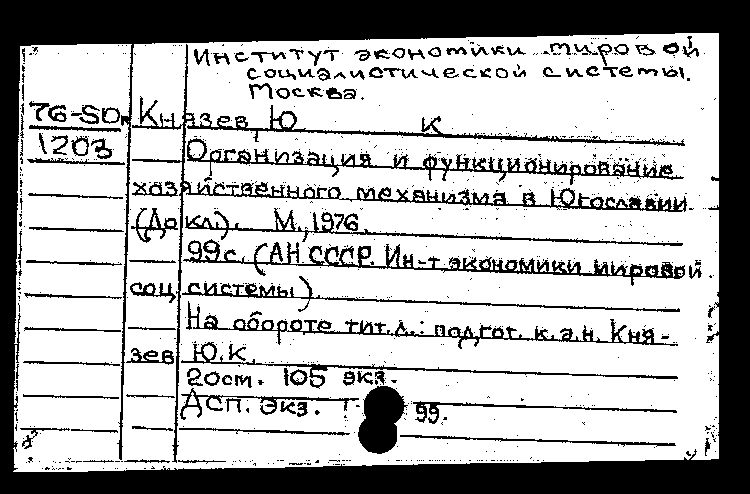 Институт экономики мировой
социалистической системы.
Москва.
76-SO Князев, Ю К
1203 Организация и функционирование
хозяйственного механизма в Югославии
(Докл.). М., 1976.
99с. (АН СССР. Ин-т экономики мировой
соц системы).
На обороте тит.л.: подгот. к.э.н. Кня-
зев Ю.К.
20см. 105 экз.
Дсп. Экз. 99.